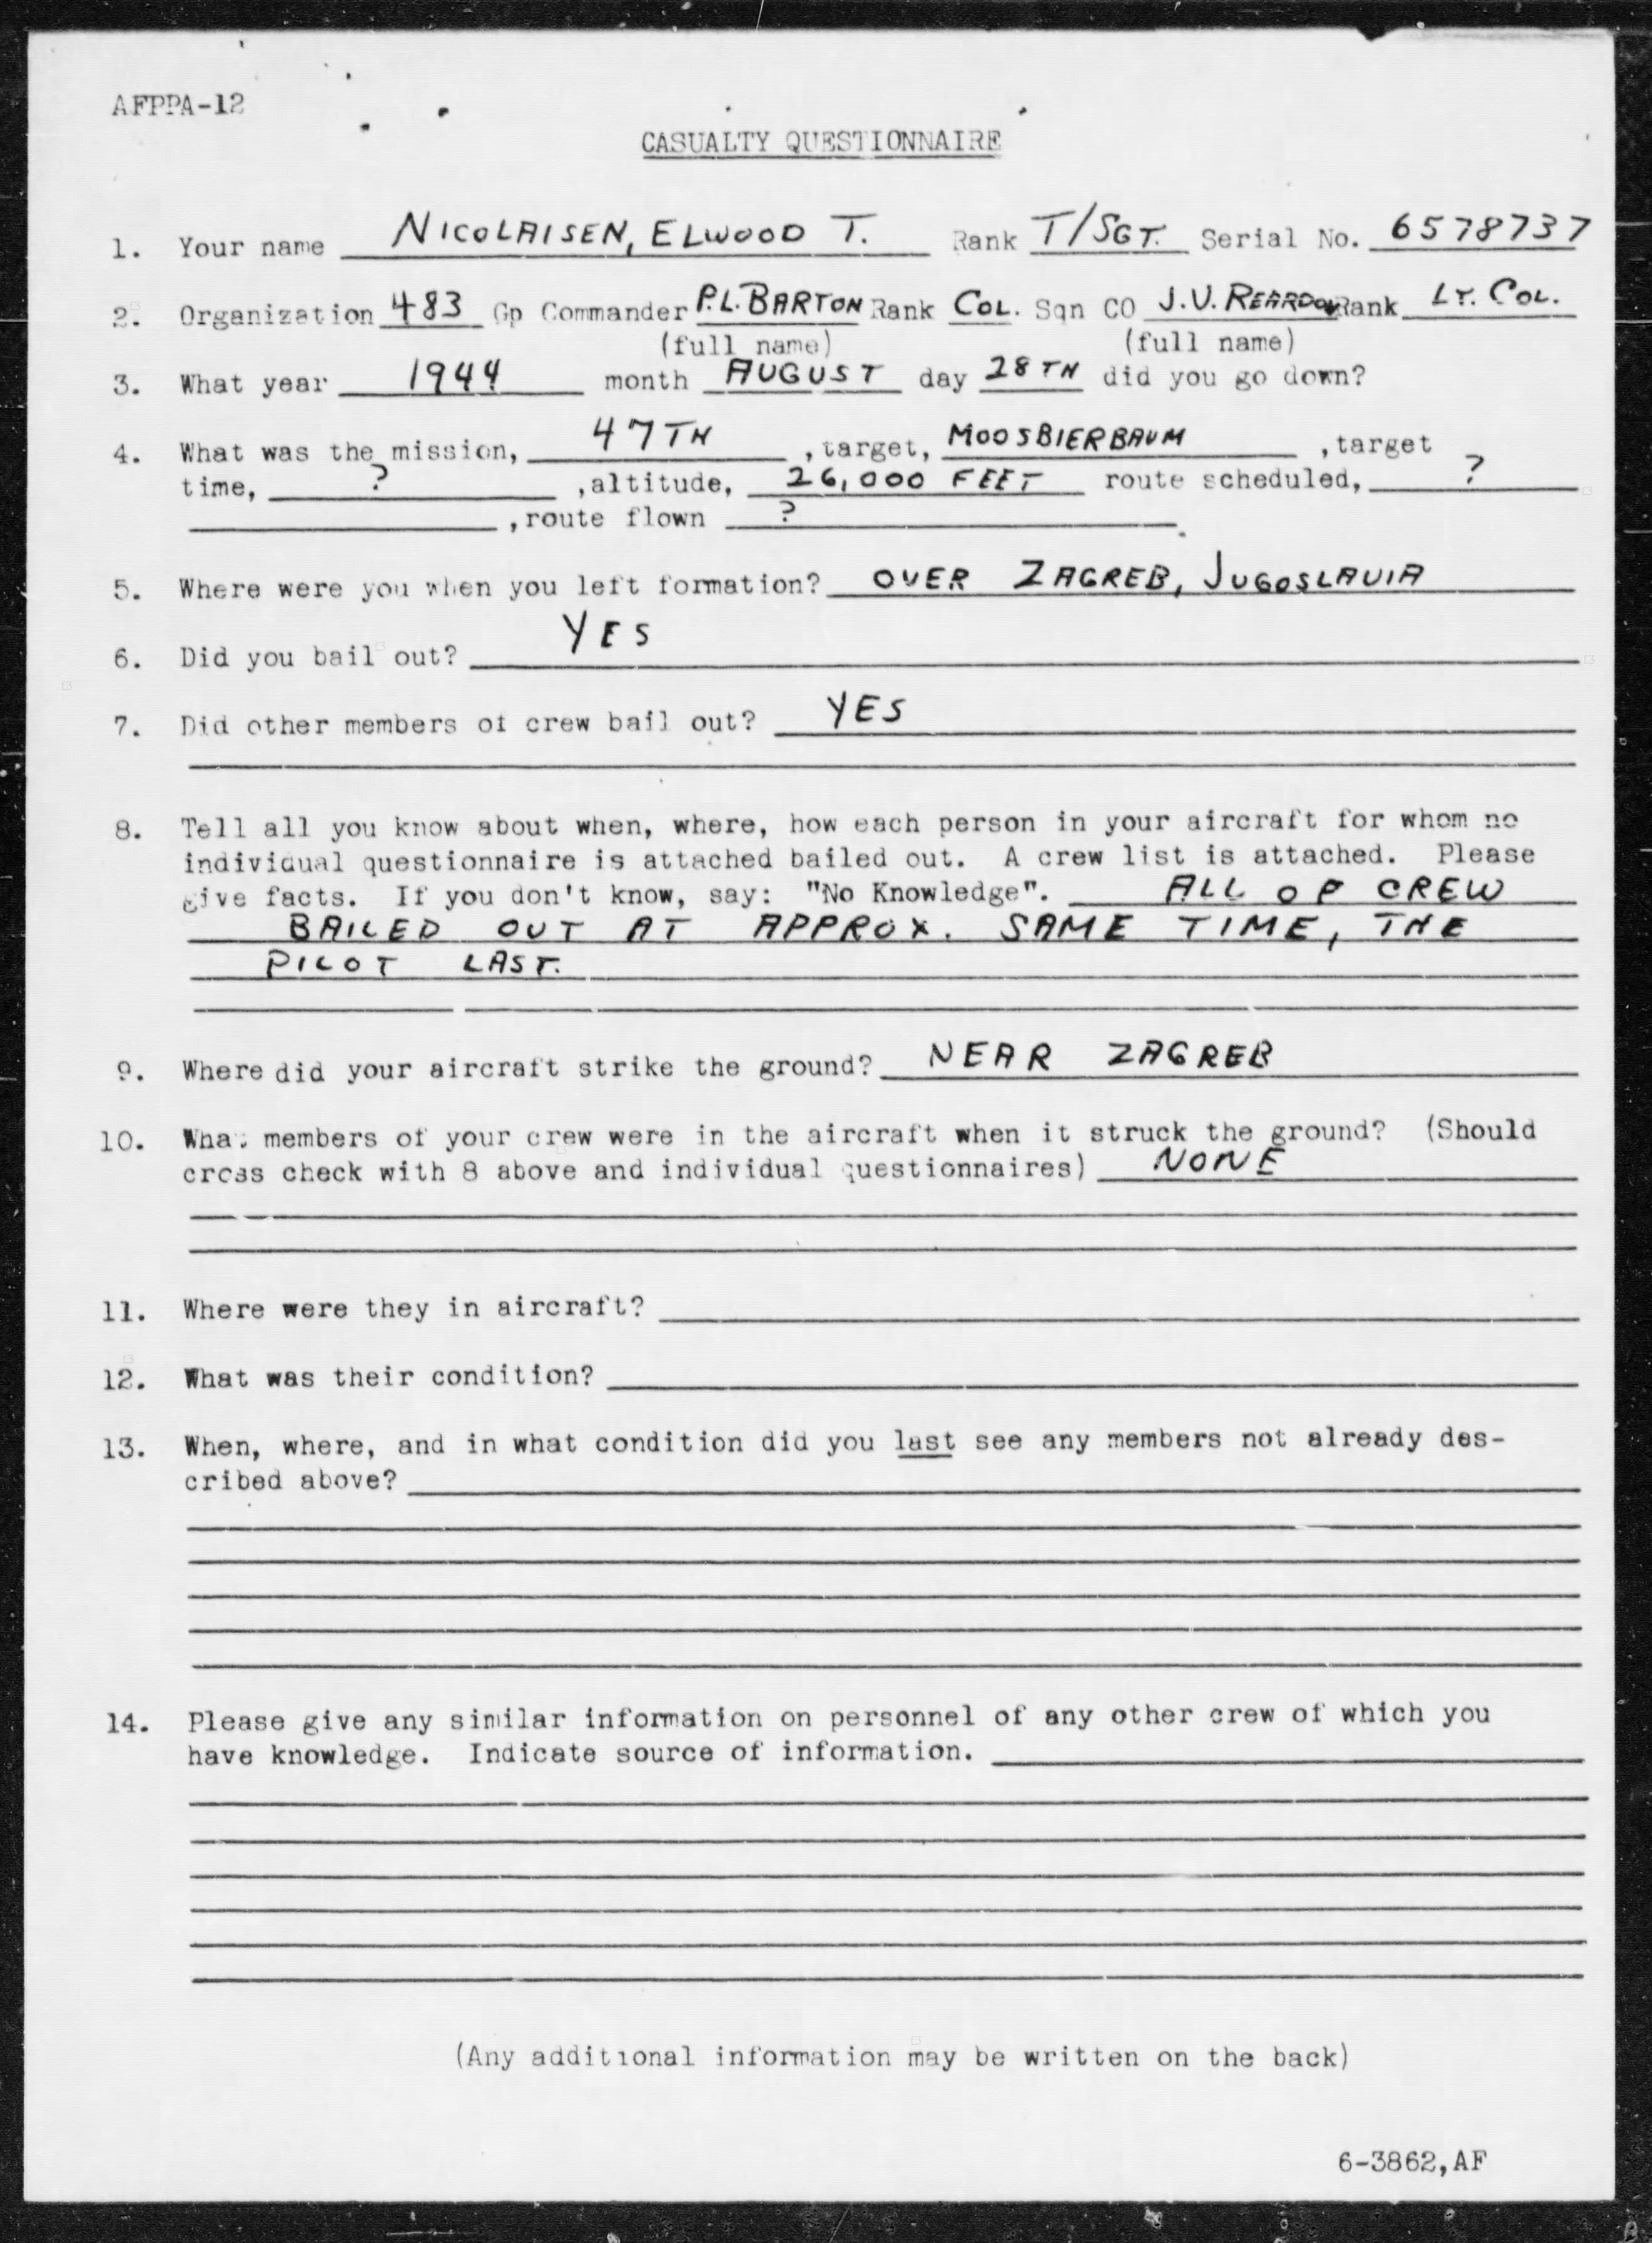 AFPPA-12
CASUALTY QUESTIONNAIRE
1. Your name NICOLAISEN, ELWOOD T. Rank T/SGT. Serial No. 6578737
2. Organization 483 Gp Commander P.L. BARTON Rank COL. Sqn CO J.V. REARDON Rank LT. COL.
(full name) (full name)
3. What year 1944 month AUGUST day 28TH did you go down?
4. What was the mission, 47TH , target, MOOSBIERBAUM , target
time, ? , altitude, 26,000 FEET route scheduled, ?
, route flown ? .
5. Where were you when you left formation? OVER ZAGREB, JUGOSLAVIA
6. Did you bail out? YES
7. Did other members of crew bail out? YES
8. Tell all you know about when, where, how each person in your aircraft for whom no
individual questionnaire is attached bailed out. A crew list is attached. Please
give facts. If you don't know, say: "No Knowledge". ALL OF CREW
BAILED OUT AT APPROX. SAME TIME, THE
PILOT LAST.
9. Where did your aircraft strike the ground? NEAR ZAGREB
10. What members of your crew were in the aircraft when it struck the ground? (Should
cross check with 8 above and individual questionnaires) NONE
11. Where were they in aircraft?
12. What was their condition?
13. When, where, and in what condition did you last see any members not already des-
cribed above?
14. Please give any similar information on personnel of any other crew of which you
have knowledge. Indicate source of information.
(Any additional information may be written on the back)
6-3862,AF